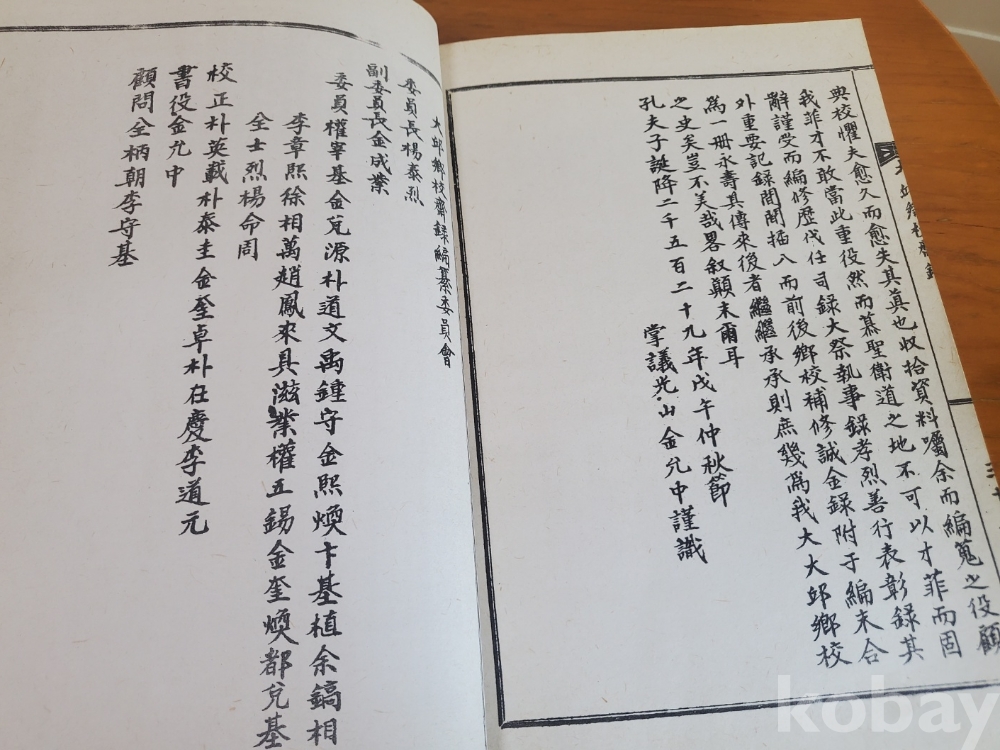 典校懼夫愈久而愈失其眞也収拾資料囑余而編蒐之役顧
我菲才不敢當此重役然而慕聖衛道之地不可以才菲而固
辭謹受而編修歷代任司錄大祭執事錄孝烈善行表彰錄其
外重要記録間間揷入而前後鄉校補修誠金録附于編末合
爲一冊永壽其傳來後者繼繼承承則庶幾爲我大大邱鄉校
之史矣豈不美哉畧叙顚末爾耳
孔夫子誕降二千五百二十九年戊午仲秋節
掌議光山金允中謹識
大邱鄉校齋録編纂委員會
委員長楊泰烈
副委員長金成業
委員權寧基金兌源朴道文禹鍾守金熙煥卞基植余鎬相
李章熙徐相萬趙鳳來具滋業權五錫金奎煥都兌基
全士烈楊命周
校正朴英載朴泰圭金奎卓朴在慶李道元
書役金允中
顧問全柄朝李守基
kobay